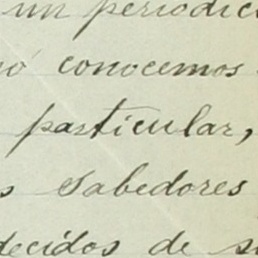 un periodic
nó conocemos
particular,
s sabedores
decidos de s